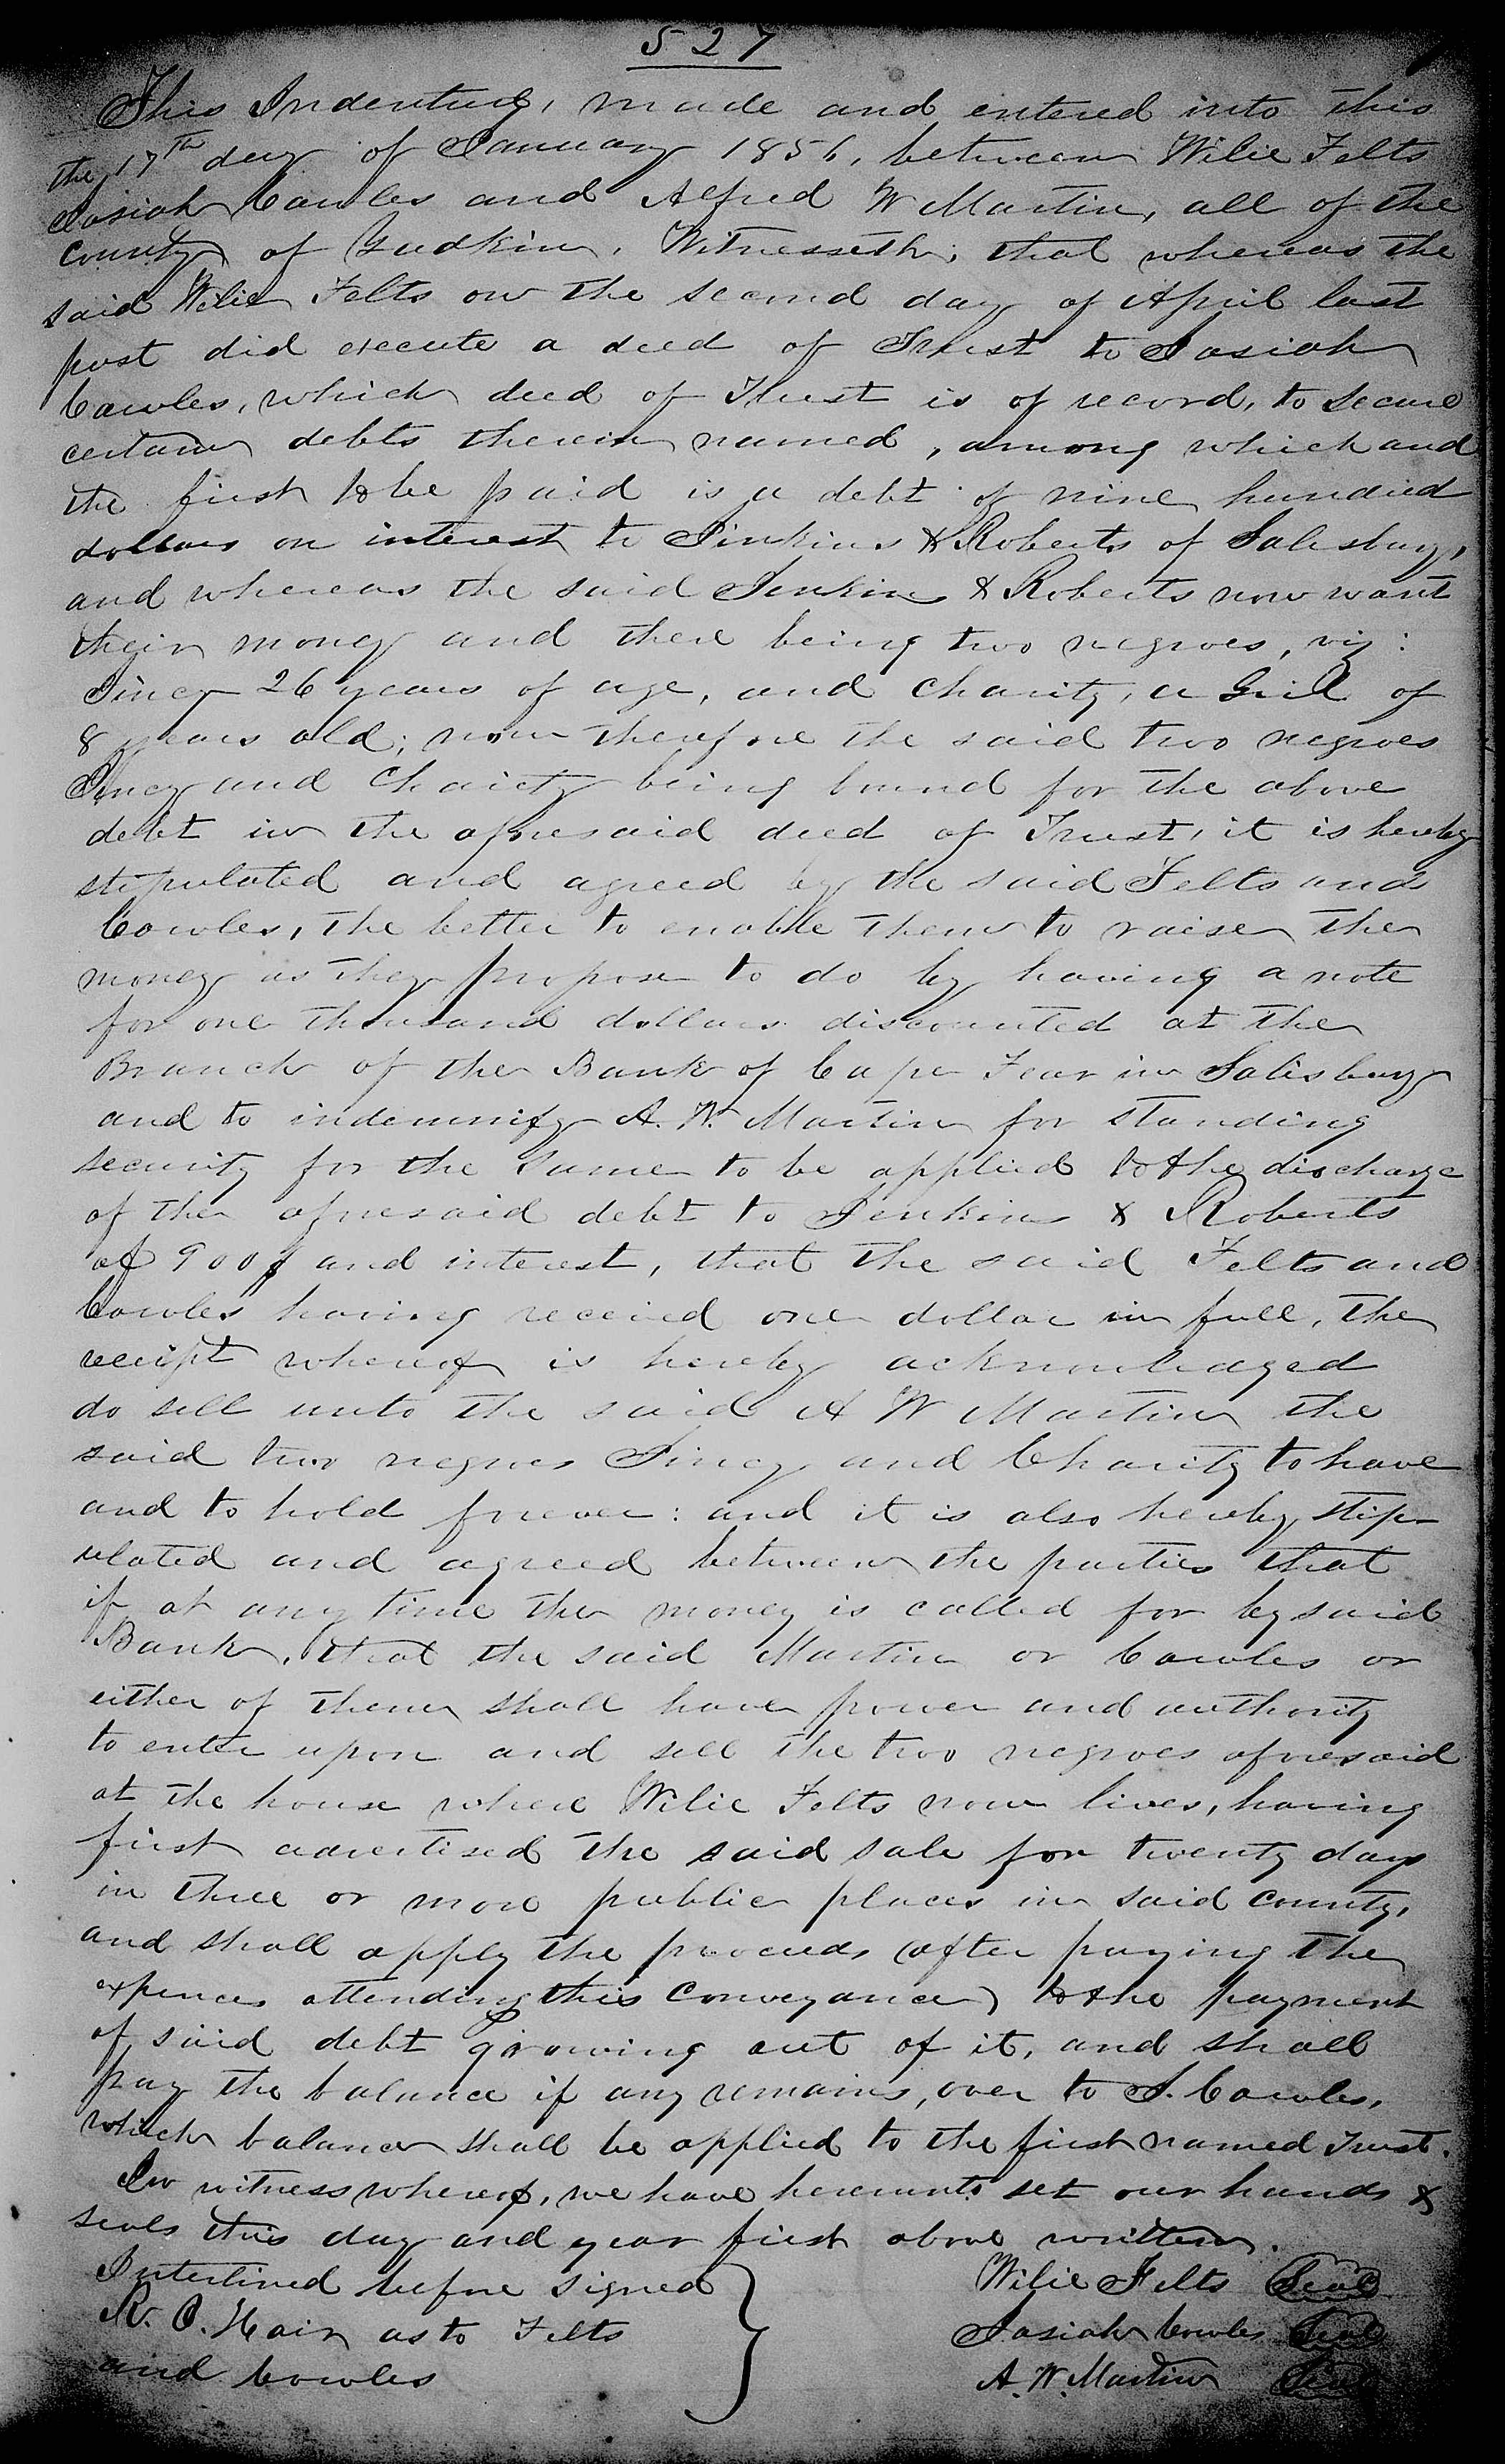 527
This Indenture, made and entered into this
the 17th day of January 1856, between Wilie Felts
Josiah Cowles and Alfred W Martin, all of the
County of Yadkin, Witnesseth; that whereas the
said Wilie Felts on the second day of April last
past did execute a deed of Trust to Josiah
Cowles, which deed of Trust is of record, to secure
certain debts therein named, among which and
the first to be paid is a debt of nine hundred
dollars on interest to Jinkins & Roberts of Salisbury,
and whereas the said Jenkins & Roberts now want
their money and there being two negroes, viz:
Jincy 26 years of age, and Charity, a Girl of
8 years old; now therefore the said two negroes
Jincy and Charity being bound for the above
debt in the aforesaid deed of Trust, it is hereby
stipulated and agreed by the said Felts and
Cowles, the better to enable them to raise the
money as they propose to do by having a note
for one thousand dollars discounted at the
Branch of the Bank of Cape Fear in Salisbury
and to indemnify A. W. Martin for standing
security for the same to be applied to the discharge
of the aforesaid debt to Jenkins & Roberts
of 900$ and interest, that the said Felts and
Cowles having received one dollar in full, the
receipt whereof is hereby acknowledged
do sell unto the said A W Martin the
said two negroes Jincy and Charity to have
and to hold forever: and it is also hereby stip-
ulated and agreed between the parties that
if at any time the money is called for by said
Bank, that the said Martin or Cowles or
either of them shall have power and authority
to enter upon and sell the two negroes aforesaid
at the house where Wilie Felts now lives, having
first advertised the said sale for twenty days
in three or more public places in said County,
and shall apply the proceeds (after paying the
expences attending this Conveyance) to the payment
of said debt growing out of it, and shall
pay the balance if any remains, over to J. Cowles,
which balance shall be applied to the first named Trust.
In witness whereof, we have hereunto set our hands &
seals this day and year first above written.
Interlined before signed
R. C. Hair as to Felts
and Cowles
Wilie Felts Seal
Josiah Cowles Seal
A. W. Martin Seal